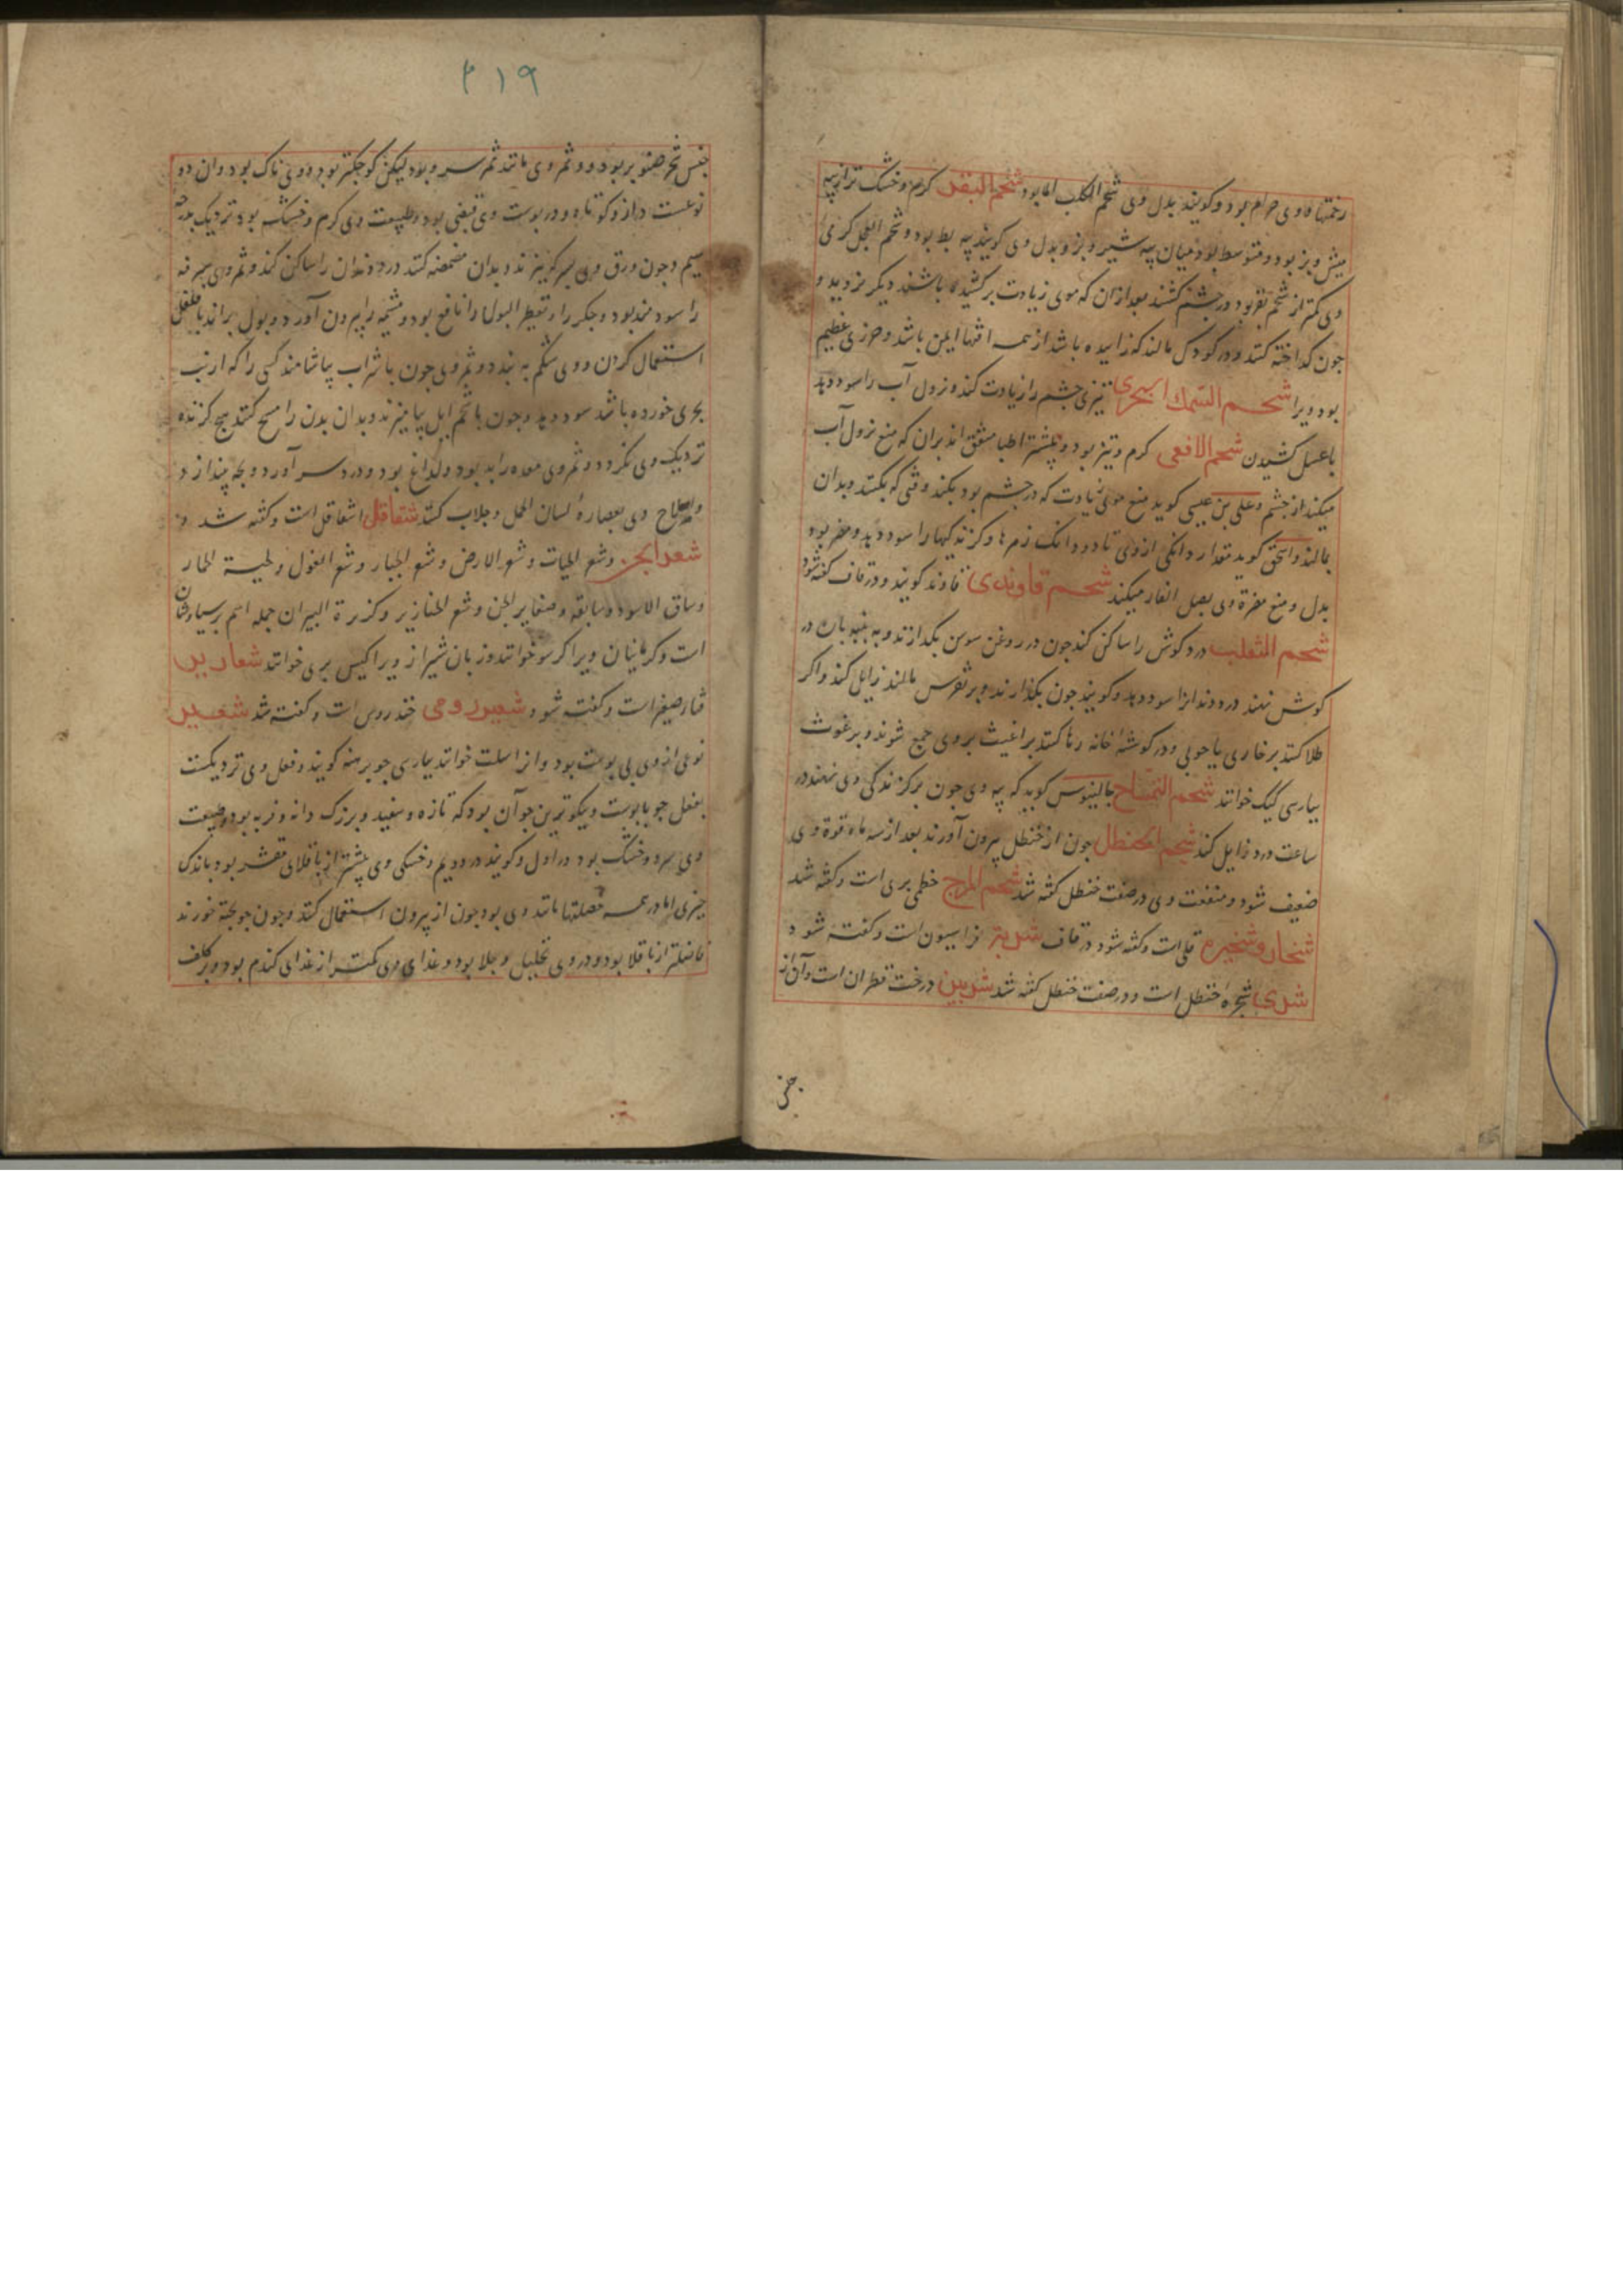 زخمها و وی حرام بود و کویند بدل وی شحم الکلب الما بود شحم البقر کرم و خشک تر از پیه
میش و بز بود و متوسط بود میان پیه شیر و بز و بدل وی کویند پیه بط بود و شحم العجل کرمی
وی کمتر از شحم بقر بود در چشم کشند بعد از آن که موی زیادت برکشیده باشند دیکر نروید و
جون کداخته کنند و در کودک مالند که زاییده باشد از همه افتها ایمن باشد و حرزی عظیم
بود ویرا شحم السمک البحری تیزی چشم را زیادت کند و نزول آب را سود دهد
با عسل کشیدن شحم الافعی کرم و تیز بود و بیشتر اطبا متفق اند بران که منع نزول آب
میکند از چشم و علی بن عیسی کوید منع موی زیادت که در چشم بود بکند وقتی که بکنند و بدان
بمالند و اسحق کوید مقدار دانکی ازوی تا دو دانک زهرها و کزندکیها را سود دهد و مضر بود
بدل و منع مضرة وی بصل الفار میکند شحم قاوندی قاوند کویند و در قاف کفته شود
شحم الثعلب درد کوش را ساکن کند جون در روغن سوسن بکدازند و به پنبه بان در
کوش نهند درد دندانرا سود دهد و کویند جون بکدازند و بر نقرس مالند زایل کند و اکر
طلا کنند بر خاری یا جوبی و در کوشه خانه رها کنند براغیث بروی جمع شوند و برغوث
بپارسی کیک خوانند شحم التمساح جالینوس کوید که پیه وی جون بر کزندکی وی نهند در
ساعت درد زایل کند شحم الحنظل جون از حنظل بیرون آورند بعد از سه ماه قوة وی
ضعیف شود و منفعت وی در صفت حنظل کفته شد شحم المرج خطمی بری است و کفته شد
شخار و شخیره قلی است و کفته شود در قاف شربتر فراسیون است و کفته شود
شری شجره حنظل است و در صفت حنظل کفته شد شربین درخت قطران است و آن از
جنس
۲۱۹
جنس شجر صنوبر بود و ثمر وی مانند ثمر سرو بود لیکن کوجکتر بود و وی ناک بود و ان دو
نوعست دراز و کوتاه و در پوست وی قبضی بود و طبیعت وی کرم و خشک بود نزدیک بدرجه
سیم و جون ورق وی بسرکه بپزند و بدان مضمضه کنند درد دندان را ساکن کند و ثمر وی سرفه
را سودمند بود و جکر را و تقطیر البول را نافع بود و مشیمه را بیرون آورد و بول براند با فلفل
استعمال کردن و وی شکم به بندد و ثمر وی جون با شراب بیاشامند کسی را که ارنب
بحری خورده باشد سود دهد و جون با شحم ایل بیامیزند و بدان بدن را مسح کنند هیج کزنده
نزدیک وی نکردد و ثمر وی معده را بد بود و لداغ بود و درد سر آورد و بجه بیندازد
واصلاح وی بعصارهٔ لسان الحمل و جلاب کنند شقاقل اشقاقل است و کفته شد و
شعر الجن و شعر الحیات و شعر الارض و شعر الجبار و شعر الغول و لحیة الحمار
وساق الاسود و سابقه و صفایر الجن و شعر الخنازیر و کزبرة البیر ان جمله اسم پرسیاوشان
است و کرمانیان ویرا کرسو خوانند و زبان شیراز ویرا کیس بری خوانند شعاریر
قثاء صغیر است و کفته شود شعیر رومی خندروس است و کفته شد شعیر
نوعی از وی بی پوست بود و انرا سلت خوانند بپارسی جو برهنه کویند و فعل وی نزدیکست
بفعل جو با پوست و نیکوترین جو آن بود که تازه و سفید و بزرک دانه و فربه بود و طبیعت
وی سرد و خشک بود در اول و کویند در دویم و خشکی وی بیشتر از باقلای مقشر بود باندک
جیزی اما در همه فصلتها مانند وی بود جون از بیرون استعمال کنند و جون جو بخته خورند
فاضلتر از باقلا بود و در وی تحلیل و جلا بود و غذای وی کمتر از غذای کندم بود و بر کلف